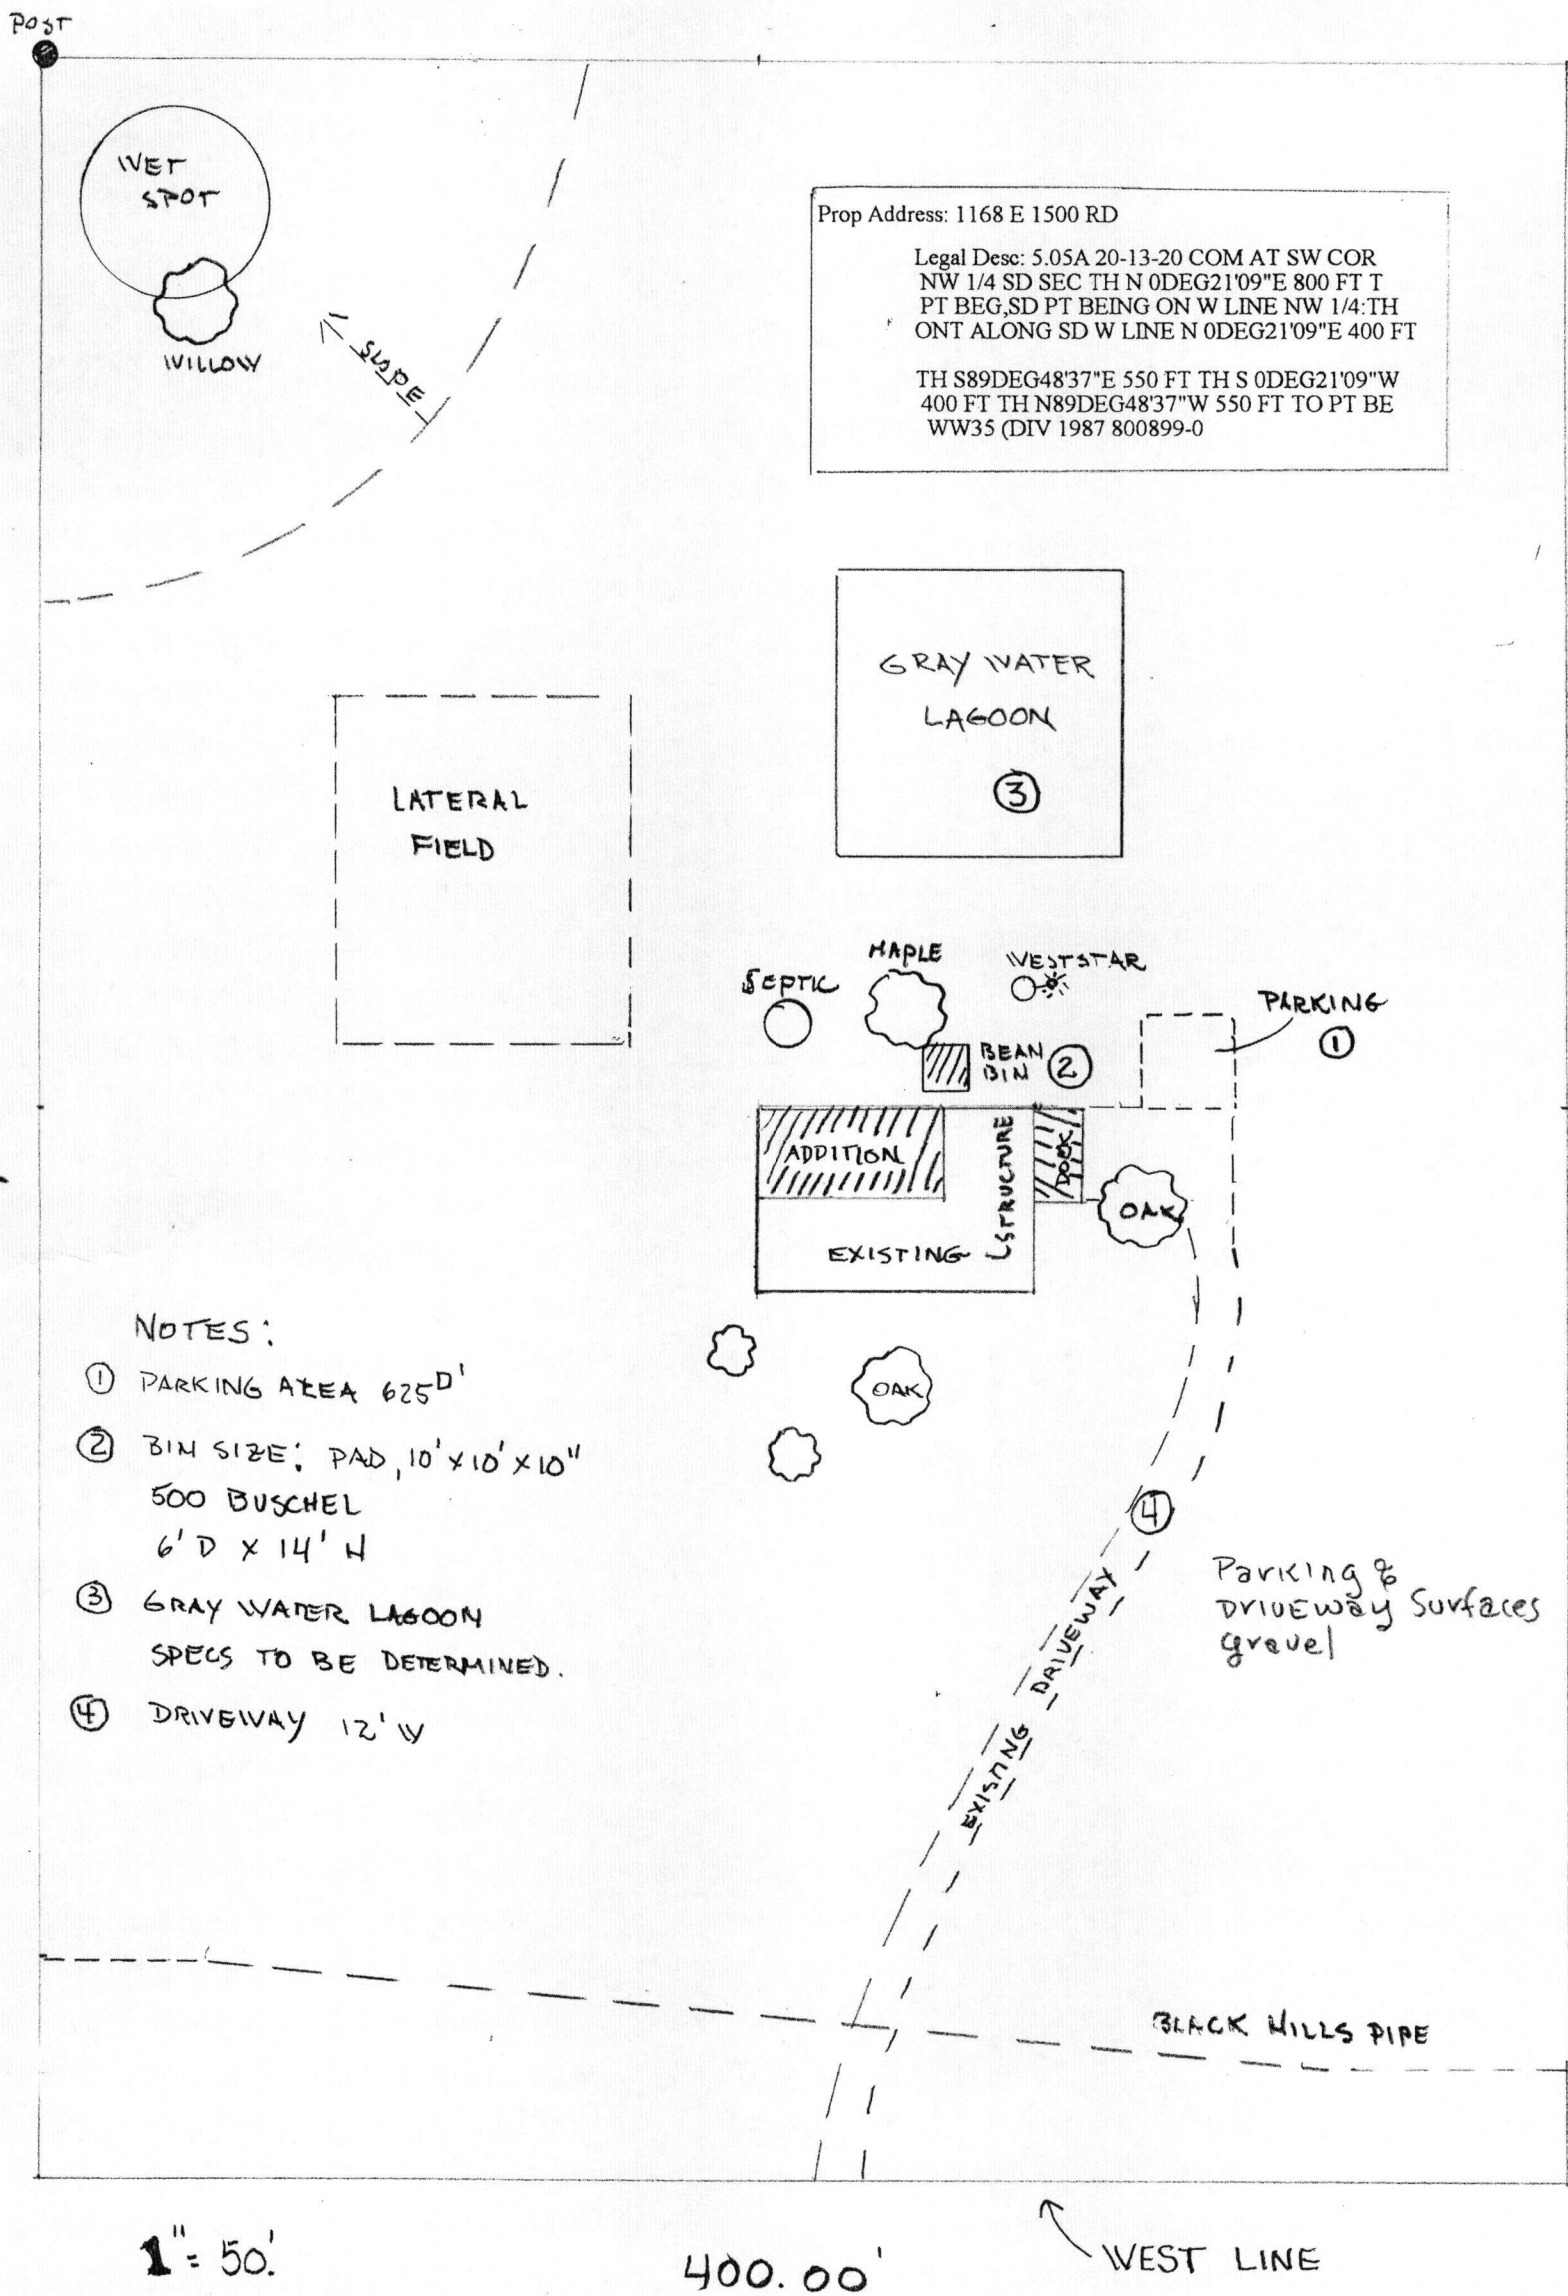 POST
WET
SPOT
WILLOW
SLOPE
Prop Address: 1168 E 1500 RD
Legal Desc: 5.05A 20-13-20 COM AT SW COR
NW 1/4 SD SEC TH N 0DEG21'09"E 800 FT T
PT BEG,SD PT BEING ON W LINE NW 1/4:TH
ONT ALONG SD W LINE N 0DEG21'09"E 400 FT
TH S89DEG48'37"E 550 FT TH S 0DEG21'09"W
400 FT TH N89DEG48'37"W 550 FT TO PT BE
WW35 (DIV 1987 800899-0
GRAY WATER
LAGOON
3
LATERAL
FIELD
SEPTIC
MAPLE
WESTSTAR
PARKING
1
BEAN
BIN
2
ADDITION
STRUCTURE
DOCK
OAK
EXISTING
OAK
NOTES:
1 PARKING AREA 625□'
2 BIN SIZE: PAD, 10'X10'X10"
500 BUSCHEL
6'D X 14'H
3 GRAY WATER LAGOON
SPECS TO BE DETERMINED.
4 DRIVEWAY 12'W
4
EXISTING DRIVEWAY
Parking &
DRIVEWAY Surfaces
gravel
BLACK HILLS PIPE
1"= 50.'
400.00'
WEST LINE